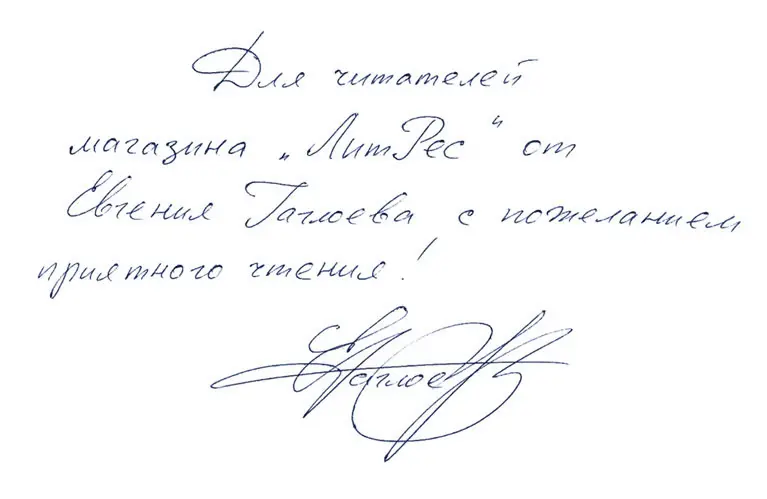 Для читателей
магазина „ЛитРес“ от
Евгения Гаглоева с пожеланием
приятного чтения!
ЕГаглоев